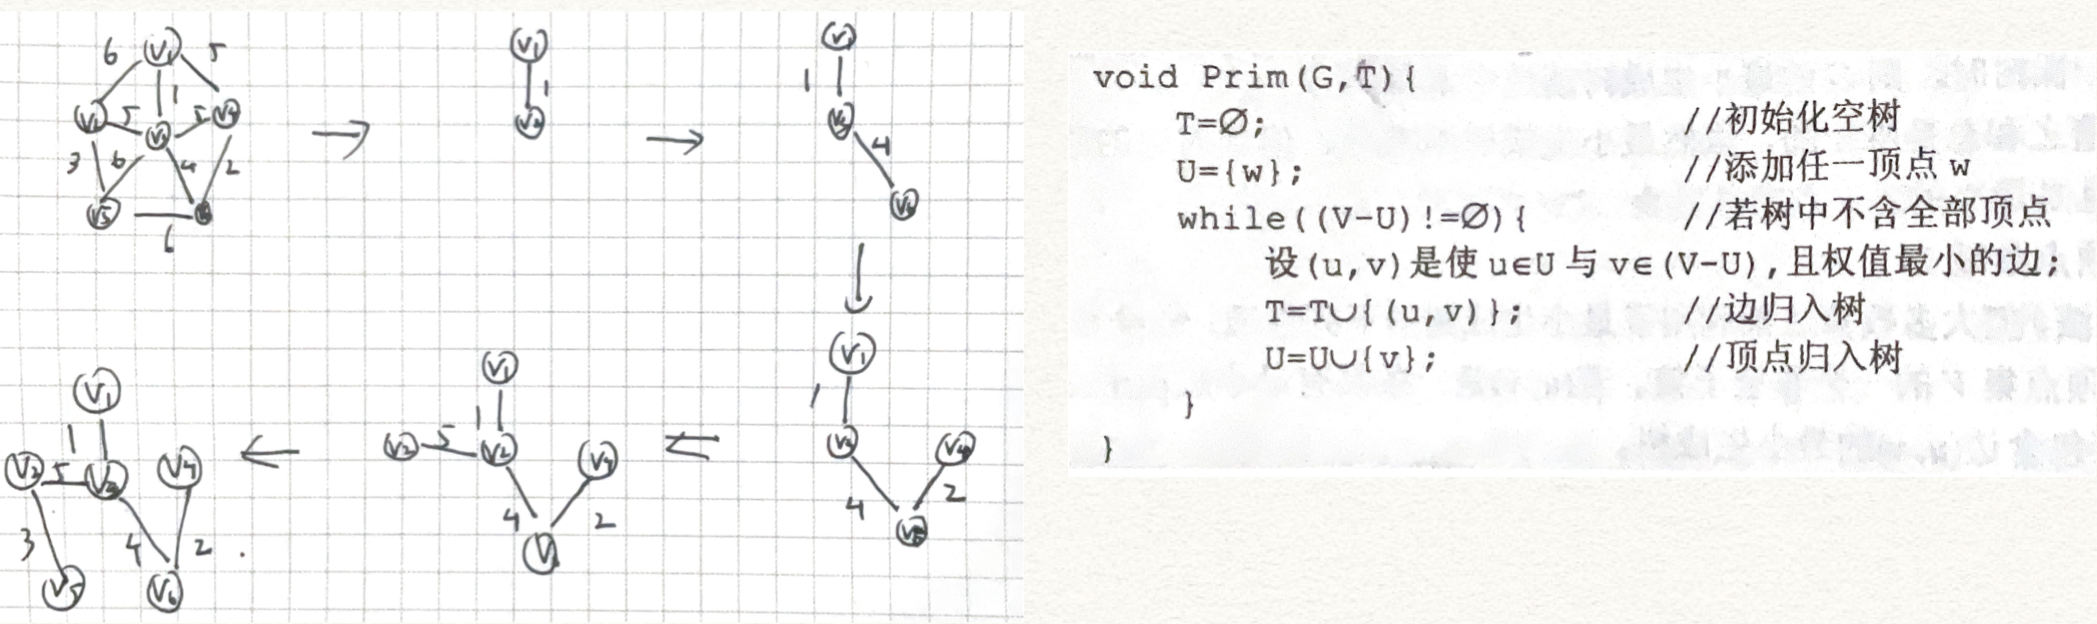 6
V1
5
5
1
5
V4
3
6
4
2
V5
6
V1
1
1
4
V1
1
V4
4
2
V1
1
5
V4
4
2
V1
1
5
V4
3
4
2
V5
V6
void Prim(G,T){
T=∅; //初始化空树
U={w}; //添加任一顶点 w
while((V-U)!=∅){ //若树中不含全部顶点
设(u,v)是使 u∈U 与 v∈(V-U),且权值最小的边;
T=T∪{(u,v)}; //边归入树
U=U∪{v}; //顶点归入树
}
}